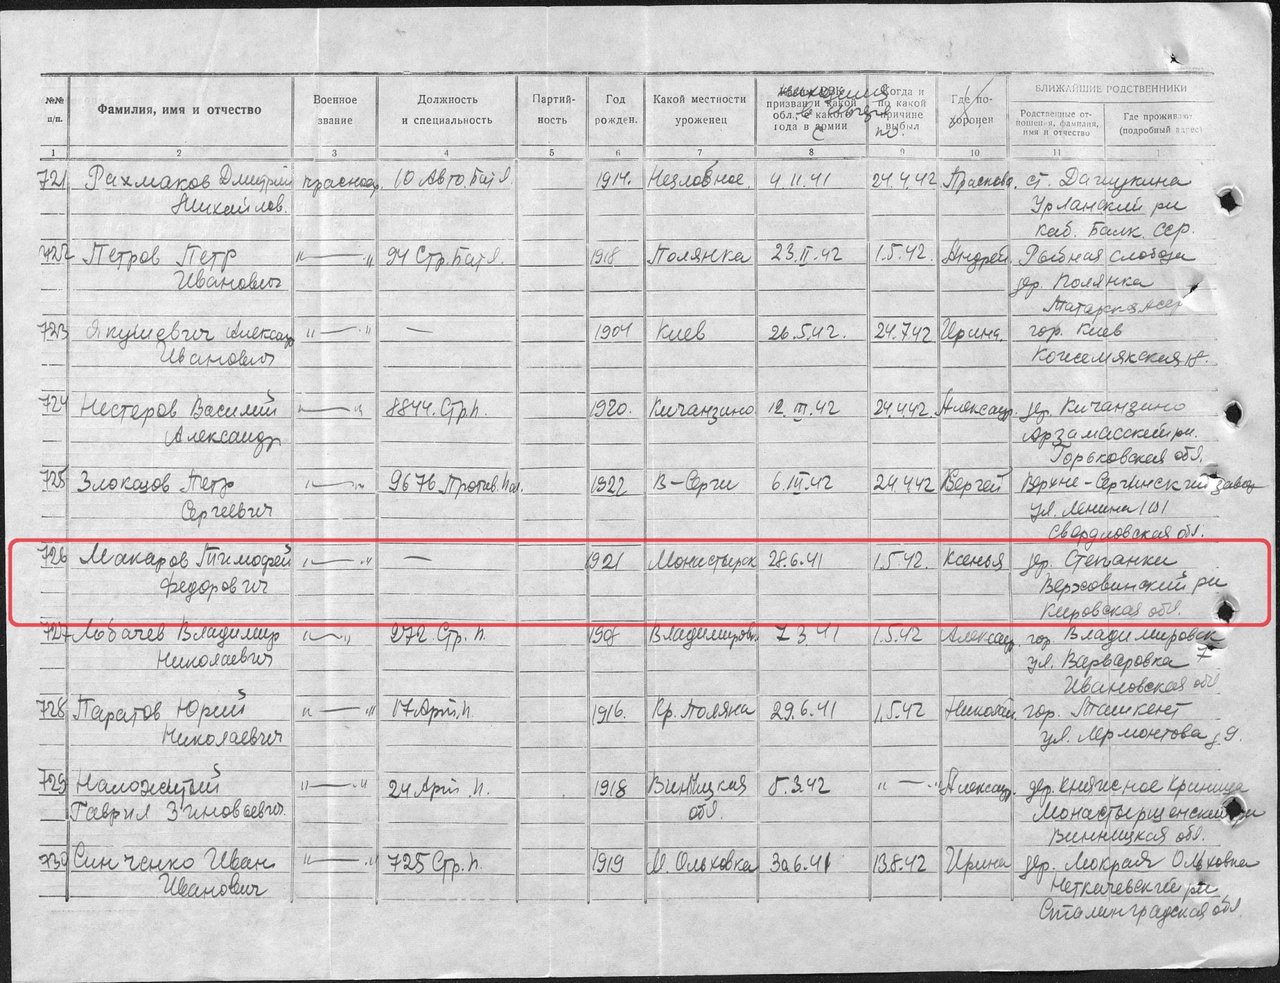 №№ п/п. Фамилия, имя и отчество Военное звание Должность и специальность Партий-ность Год рожден. Какой местности уроженец призван и какой обл., с какого года в армии Когда и по какой причине выбыл Где по-хоронен БЛИЖАЙШИЕ РОДСТВЕННИКИ
Родственные от-ношения, фамилия, имя и отчество Где проживают (подробный адрес)
с по
1 2 3 4 5 6 7 8 9 10 11
721 Рахмаков Дмитрий Красноар 10 Авто. Бат. 1914. Незлобное. 4.11.41 24.4.42 Прасков. ст.
Михайлов. ри
каб. Балк. сср.
722 Петров Петр "—" 94 Стр. Бат. 1918 Полянка 23.II.42 1.5.42. Андрей. Рыбная слобода
Иванович дер. Полянка
Татарская сср
723 Якушевич Александр "—" — 1904 Киев 26.5.42. 24.7.42 Ирина. гор. Киев
Иванович Кожемякская
724 Нестеров Василий "—" 8844. Стр. п. 1920. Кичанзино 12.III.42 24.4.42. Александр. дер. Кичанзино
Александр Арзамасский ри.
Горьковская обл.
725 Злоказов Петр "—" 9676 Против. 1922 В-Серги 6.III.42 24.4.42 Сергей Верхне-Сергинский завод
Сергеевич ул. Ленина 101
Свердловская обл.
726 Макаров Тимофей "—" — 1921 Монастырск 28.6.41 1.5.42. Ксенья дер. Степанки
Федорович Верховинский ри
Кировская обл.
727 Лобачев Владимир "—" 272 Стр. п. 1908 Владимиров. 7.3.41 1.5.42 Александр. гор. Владимировск
Николаевич ул. Варваровка 7
Ивановская обл
728 Паратов Юрий "—" 17 Арт. п. 1916. Кр. Поляна 29.6.41 1.5.42 Николай. гор. Ташкент
Николаевич ул. Лермонтова д. 9.
729 Наложитый "—" 24 Арт. п. 1918 Винницкая 5.3.42 "—" Александр. дер. Княжное Криница
Гаврил Зиновьевич. обл. Монастырщенский ри
Винницкая обл.
730 Синченко Иван "—" 725 Стр. п. 1919 М. Ольховка 30.6.41 13.8.42 Ирина дер. Мокрая Ольховка
Иванович Неткачевский ри
Сталинградская обл.